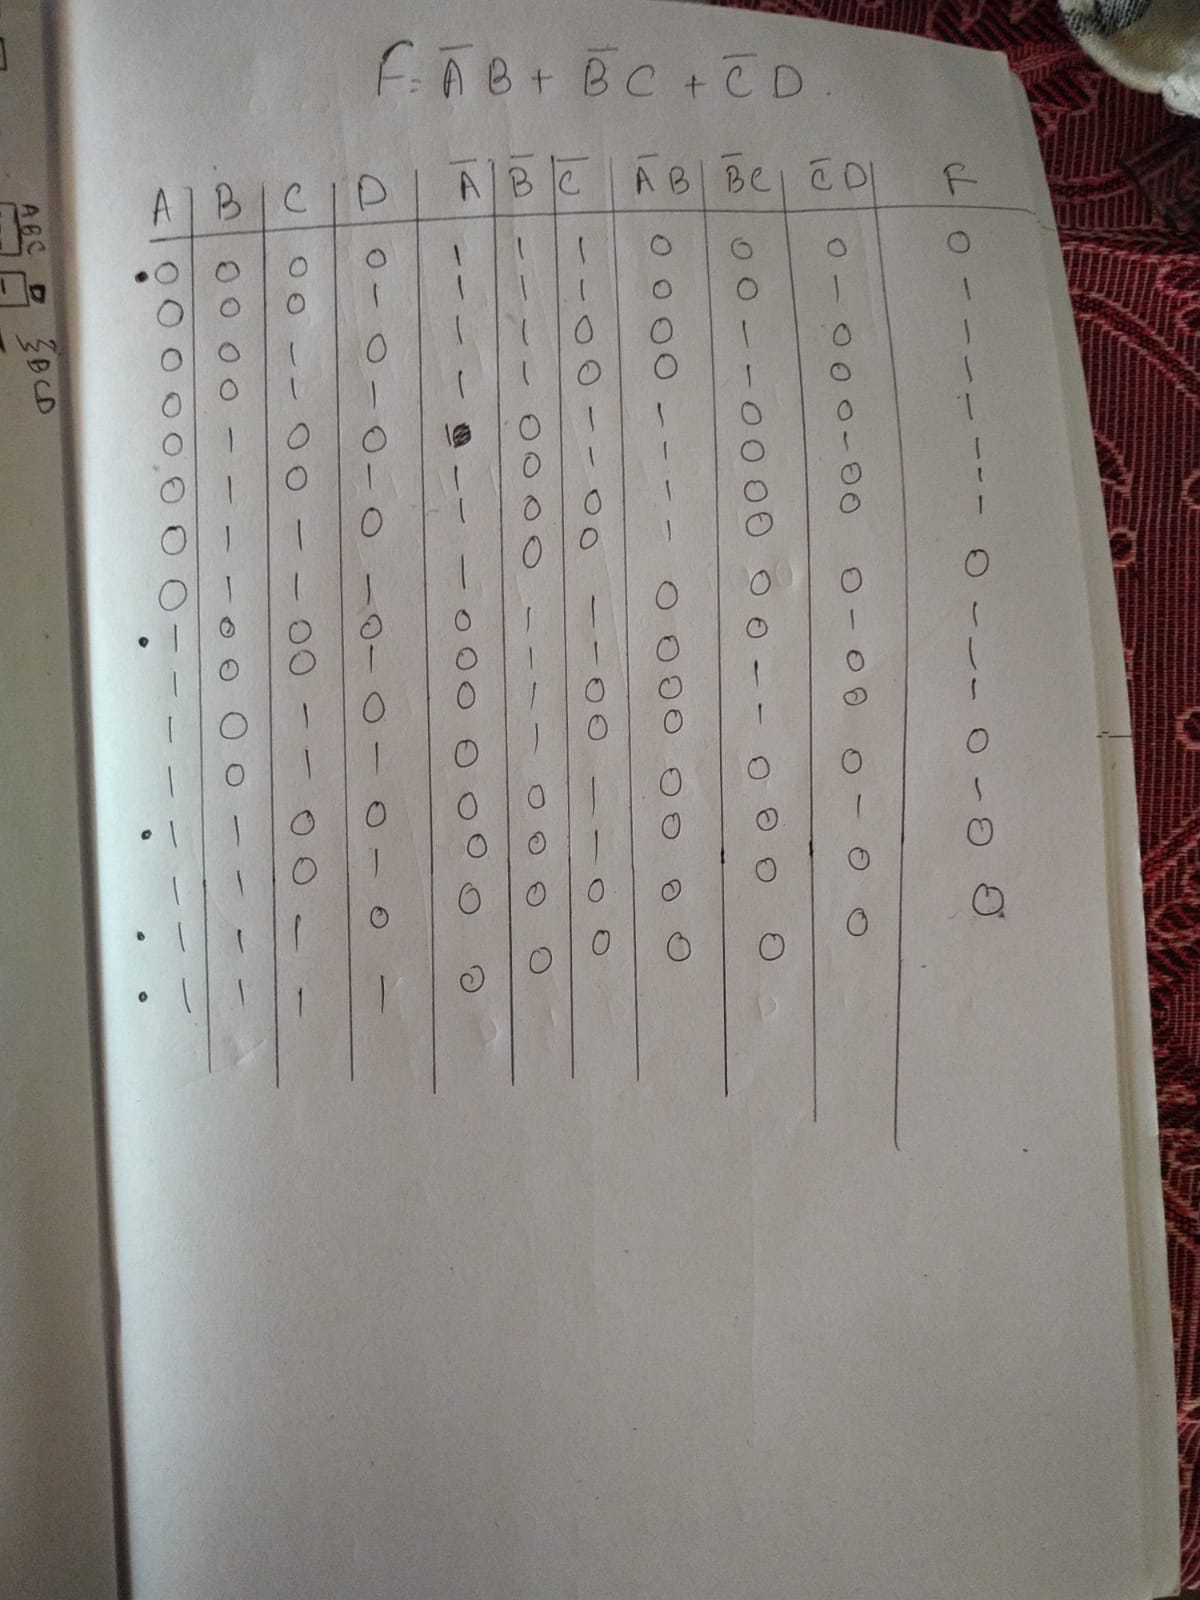 F = A̅ B + B̅ C + C̅ D .
A | B | C | D | A̅ | B̅ | C̅ | A̅ B | B̅ C | C̅ D | F
0 0 0 0 1 1 1 0 0 0 0
0 0 0 1 1 1 1 0 0 1 1
0 0 1 0 1 1 0 0 1 0 1
0 0 1 1 1 1 0 0 1 0 1
0 1 0 0 1 0 1 1 0 0 1
0 1 0 1 1 0 1 1 0 1 1
0 1 1 0 1 0 0 1 0 0 1
0 1 1 1 1 0 0 1 0 0 1
1 0 0 0 0 1 1 0 0 0 0
1 0 0 1 0 1 1 0 0 1 1
1 0 1 0 0 1 0 0 1 0 1
1 0 1 1 0 1 0 0 1 0 1
1 1 0 0 0 0 1 0 0 0 0
1 1 0 1 0 0 1 0 0 1 1
1 1 1 0 0 0 0 0 0 0 0
1 1 1 1 0 0 0 0 0 0 0
ABC D